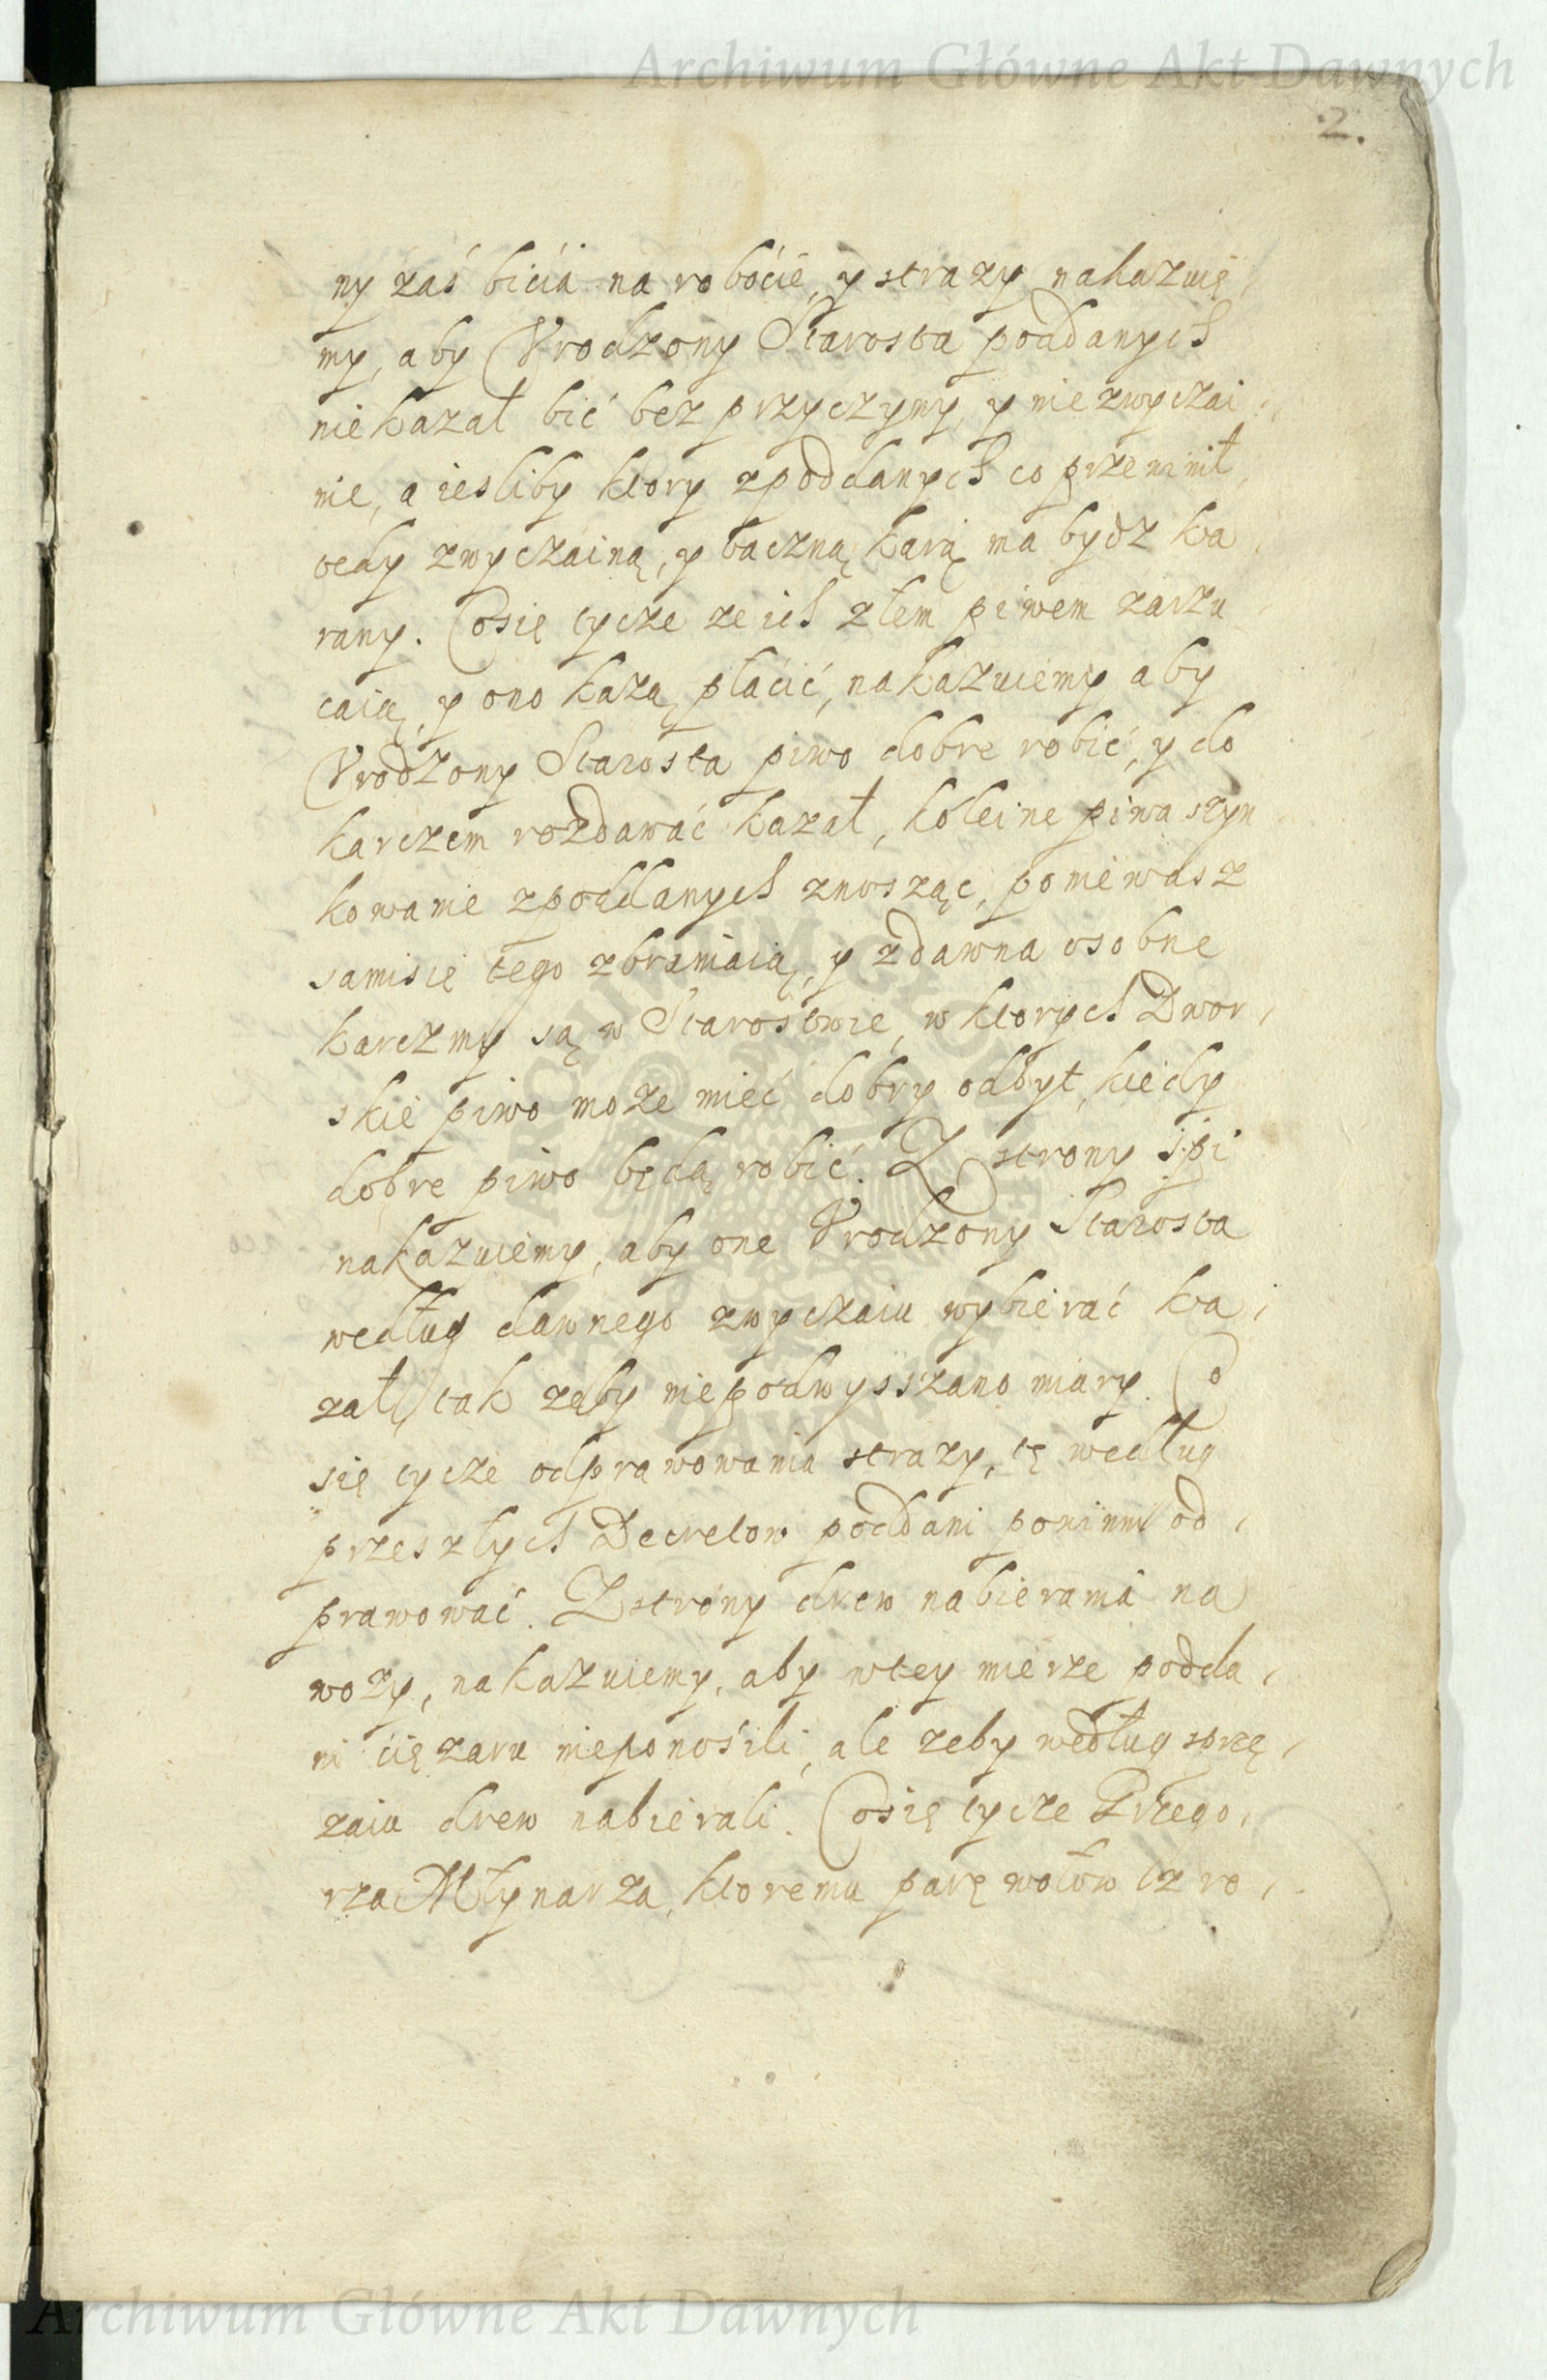 Archiwum Główne Akt Dawnych
2.
ny zaś bićia na roboćie, y strazy nakazuię
my, aby Vrodzony Starosta poddanych
nie kazał bić bez przyczyny, y niezwyczai
nie, a iesliby ktory zpoddanych co przewinił,
tedy zwyczainą, y baczną karą ma bydz ka
rany. Cosię tycze ze ich złem piwem zarzu
caią, y ono kazą płaćić, nakazuiemy aby
Vrodzony Starosta piwo dobre robić, y do
karczem rozdawać kazał, koleine piwa szyn
kowanie zpoddanych znosząc, poniewasz
samisię tego zbraniaią, y zdawna osobne
karczmy są w Starostwie, w ktorych Dwor
skie piwo moze mieć dobry odbyt, kiedy
dobre piwo będą robić. Z strony spi
nakazuiemy, aby one Vrodzony Starosta
według dawnego zwyczaiu wybierać ka
zał, tak zeby niepodwysszano miary. Co
się tycze odprawowania strazy, tę według
przeszłych Decretow poddani powinni od
prawować. Zstrony drew nabierania na
wozy, nakazuiemy, aby wtey mierze podda
ni ćięzaru nieponośili, ale zeby według sprzę
zaiu drew nabierali. Cosię tycze Grzego
rza Młynarza, ktoremu parę wołow
ARCHIWUM GŁÓWNE AKT DAWNYCH
Archiwum Główne Akt Dawnych